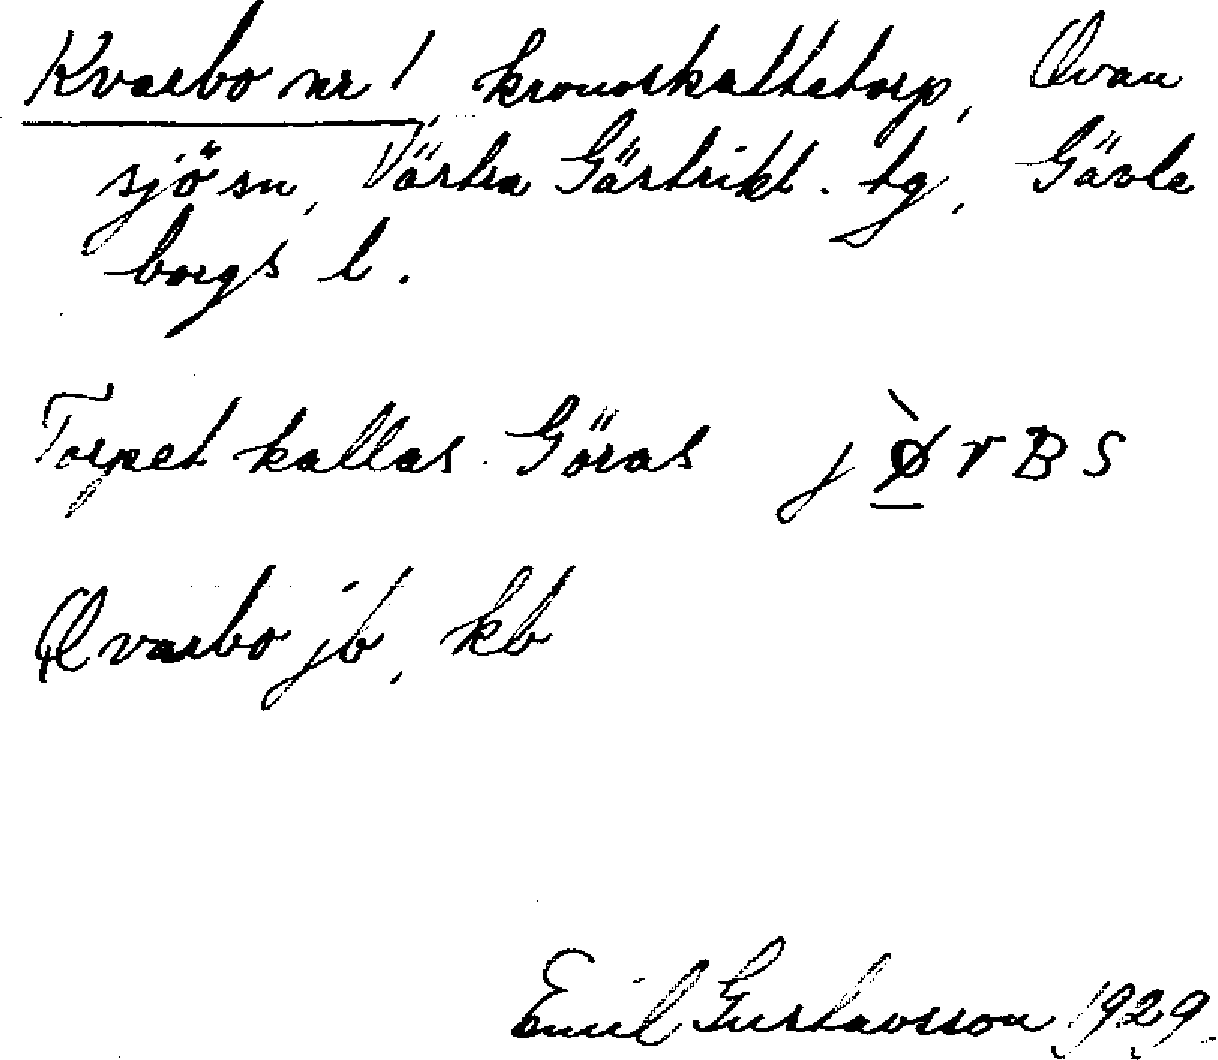 Kvarbo nr 1, kronoskattetorp, Ovan
sjö sn, Västra Gästrikl. tg, Gävle
borgs l.
Torpet kallas Göras
Qvarbo jb, kb
Emil Gustavsson 1929.